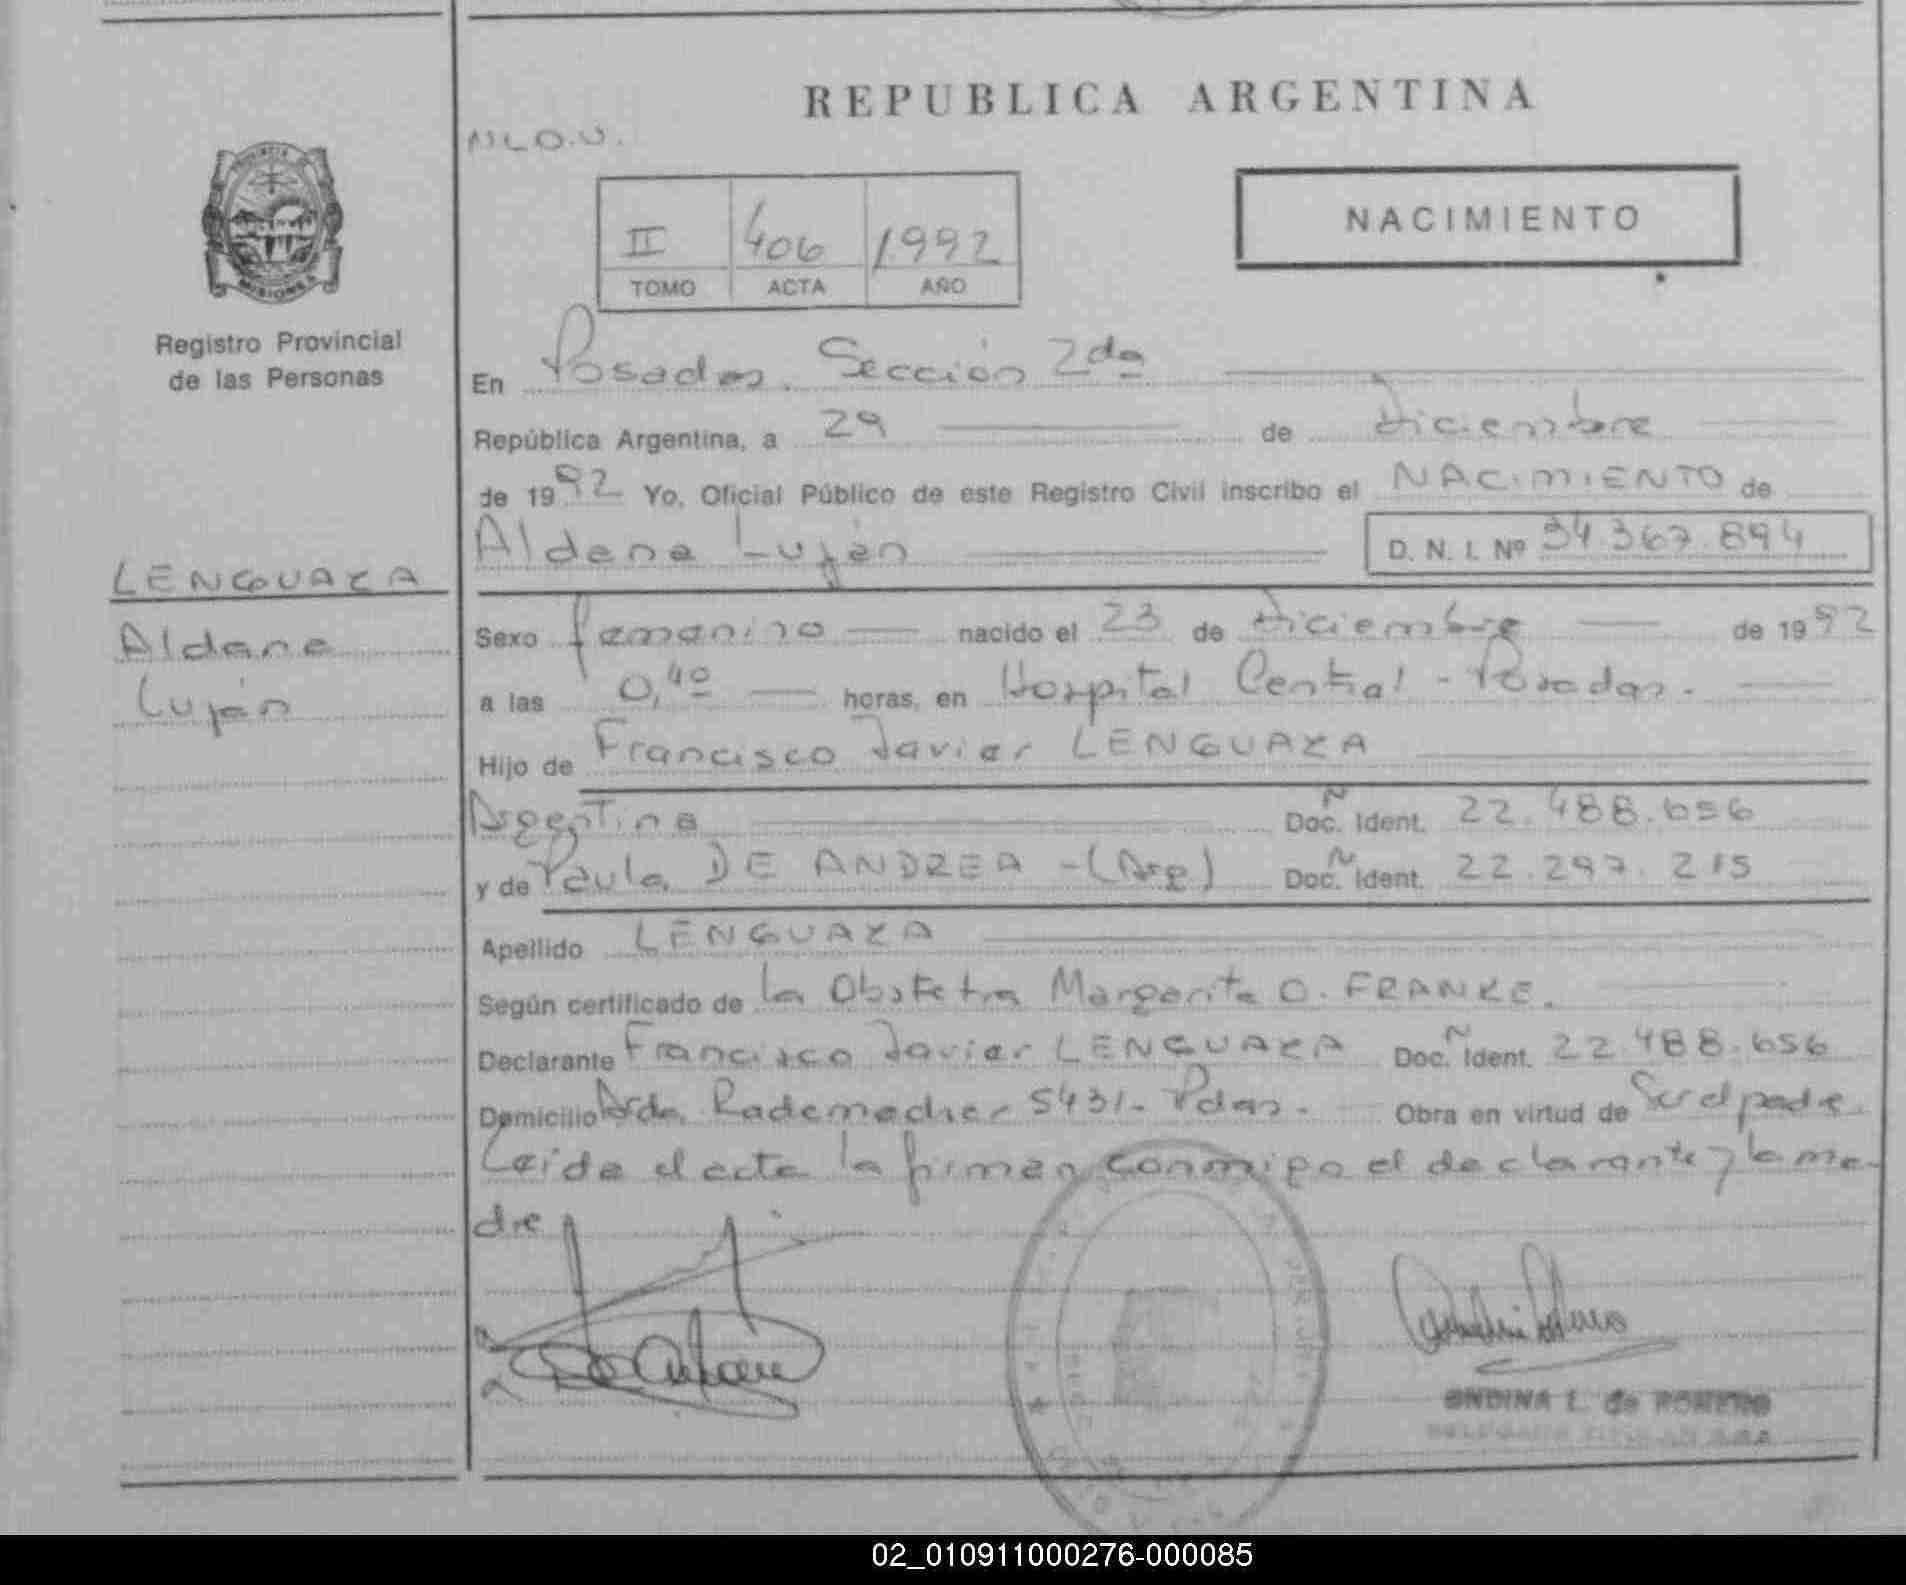 REPUBLICA ARGENTINA
NACIMIENTO
II 406 1992
TOMO ACTA AÑO
PROVINCIA
MISIONES
Registro Provincial
de las Personas
LENGUAZA
Aldana
Luján
En Posadas. Sección 2da
República Argentina, a 29 de Diciembre
de 1992 Yo, Oficial Público de este Registro Civil inscribo el NACIMIENTO de
Aldana Luján D. N. I. Nº 34.367.894
Sexo femenino nacido el 23 de Diciembre de 1992
a las 0,40 horas, en Hospital Central - Posadas.
Hijo de Francisco Javier LENGUAZA
Argentina Doc. Ident. 22.488.656
y de Paula DE ANDREA - (Arg) Doc. Ident. 22.297.215
Apellido LENGUAZA
Según certificado de la Obstetra Margarita O. FRANKE.
Declarante Francisco Javier LENGUAZA Doc. Ident. 22.488.656
Domicilio Avda. Rademacher 5431- Pdas. Obra en virtud de Ser el padre
Leida el acta la firman conmigo el declarante y la ma-
dre
ONDINA L. de ROMERO
02_010911000276-000085